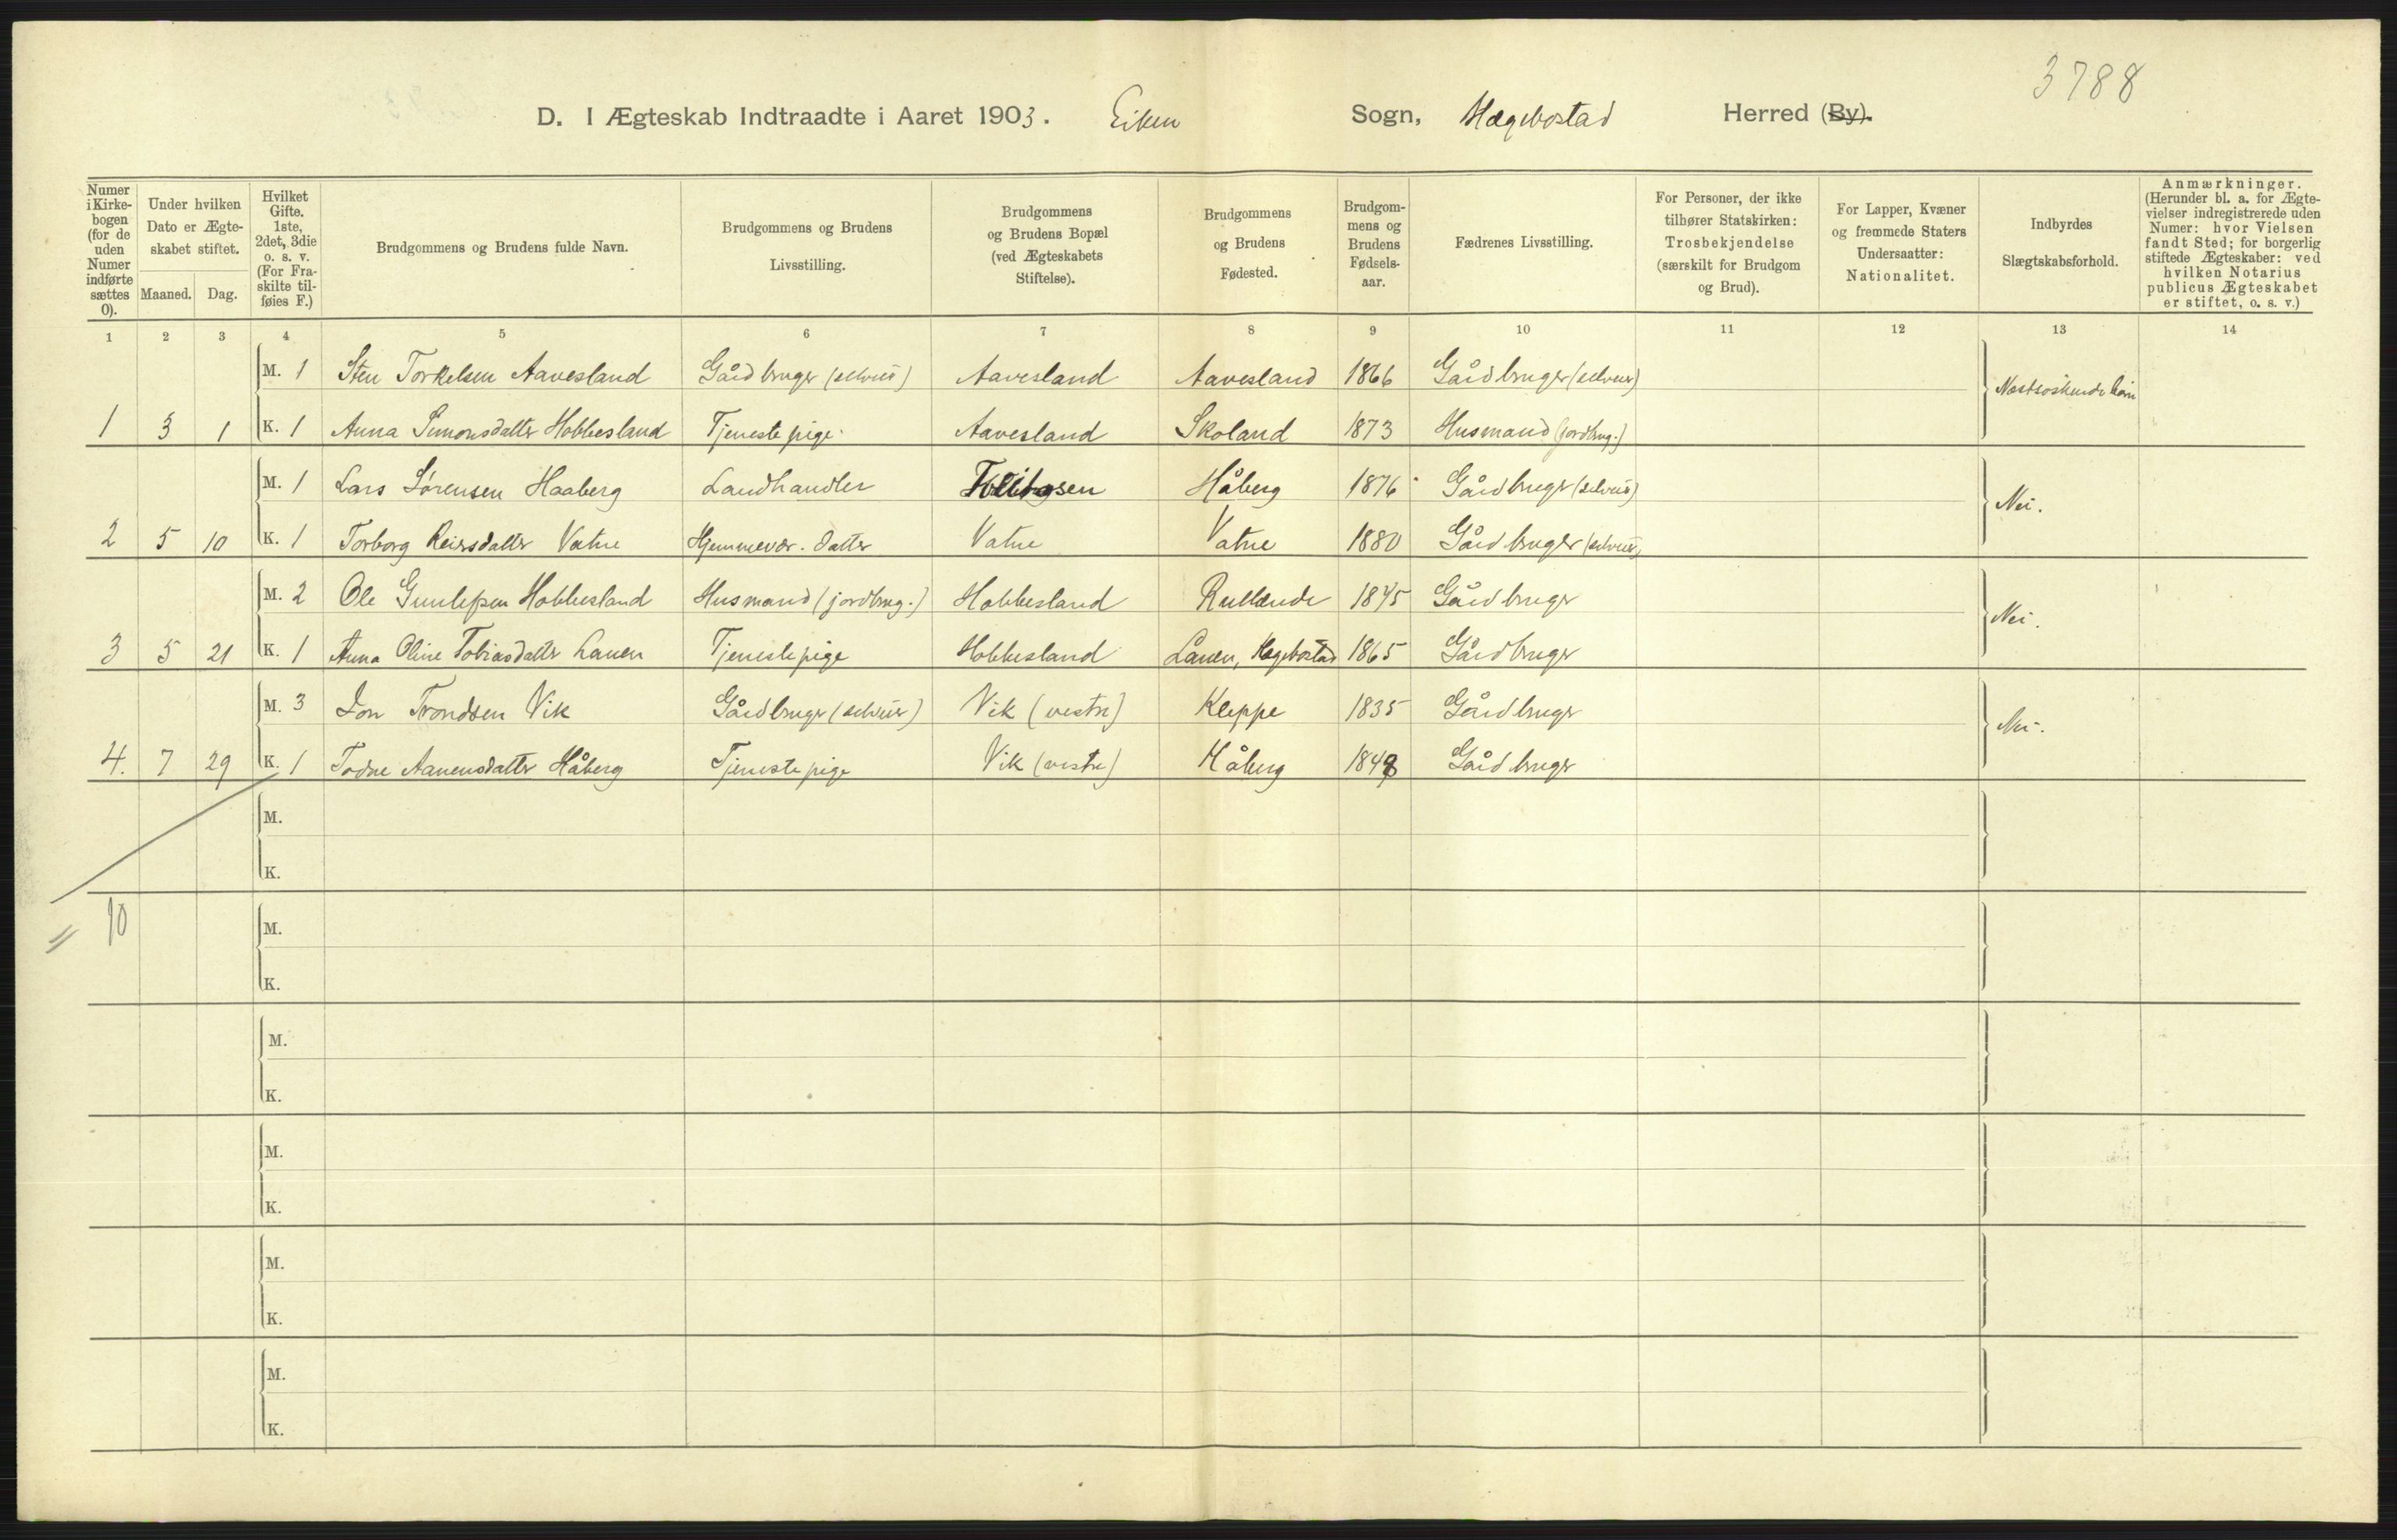 3788
D. I Ægteskab Indtraadte i Aaret 1903. Eiken Sogn, Hægebostad Herred (By).
Numer i Kirke-bogen (for de uden Numer indførte sættes 0).
Under hvilken Dato er Ægte-skabet stiftet.
Maaned. Dag.
Hvilket Gifte. 1ste, 2det, 3die o. s. v. (For Fra-skilte til-føies F.)
Brudgommens og Brudens fulde Navn.
Brudgommens og Brudens Livsstilling.
Brudgommens og Brudens Bopæl (ved Ægteskabets Stiftelse).
Brudgommens og Brudens Fødested.
Brudgom-mens og Brudens Fødsels-aar.
Fædrenes Livsstilling.
For Personer, der ikke tilhører Statskirken: Trosbekjendelse (særskilt for Brudgom og Brud).
For Lapper, Kvæner og fremmede Staters Undersaatter: Nationalitet.
Indbyrdes Slægtskabsforhold.
Anmærkninger. (Herunder bl. a. for Ægte-vielser indregistrerede uden Numer: hvor Vielsen fandt Sted; for borgerlig stiftede Ægteskaber: ved hvilken Notarius publicus Ægteskabet er stiftet, o. s. v.)
1 2 3 4 5 6 7 8 9 10 11 12 13 14
M. 1 Sten Torkelsen Aavesland Gårdbruger (selveier) Aavesland Aavesland 1866 Gårdbruger (selveier) Næstsøskendebørn
1 3 1 K. 1 Anna Simonsdatter Hobbesland Tjenestepige. Aavesland Skoland 1873 Husmand (jordbrug.)
M. 1 Lars Sørensen Haaberg Landhandler Håberg 1876 Gårdbruger (selveier) Nei.
2 5 10 K. 1 Torborg Reiersdatter Vatne Hjemmevær. datter Vatne Vatne 1880 Gårdbruger (selveier)
M. 2 Ole Gunlefsen Hobbesland Husmand (jordbrug.) Hobbesland 1845 Gårdbruger Nei.
3 5 21 K. 1 Anna Oline Tobiasdatter Lauen Tjenestepige Hobbesland Låuen, Hægebostad 1865 Gårdbruger
M. 3 Jon Trondsen Vik Gårdbruger (selveier) Vik (vestre) Kleppe 1835 Gårdbruger Nei.
4. 7 29 K. 1 Todne Aanensdatter Håberg Tjenestepige Vik (vestre) Håberg 1848 Gårdbruger
M.
K.
10
M.
K.
M.
K.
M.
K.
M.
K.
M.
K.